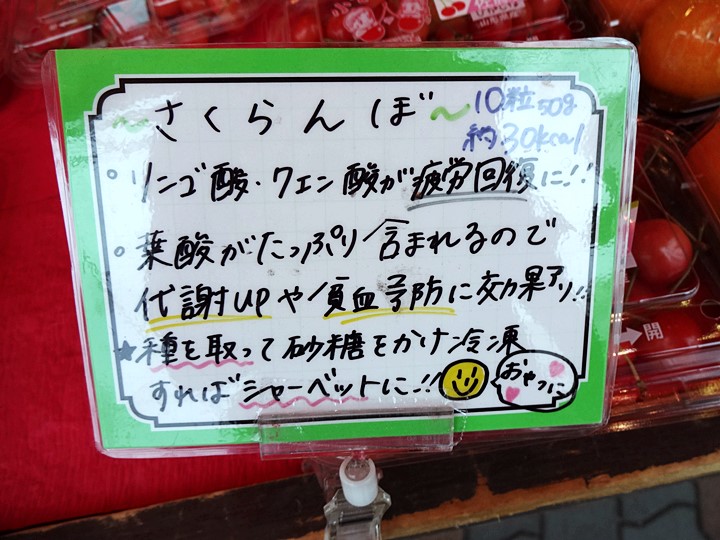 ~さくらんぼ~
10粒50g
約30kcal
。リンゴ酸・クエン酸が疲労回復に!!
。葉酸がたっぷり含まれるので
代謝UPや貧血予防に効果アリ!!
★種を取って砂糖をかけ冷凍
すればシャーベットに!!
おやつに
→開
山形県産